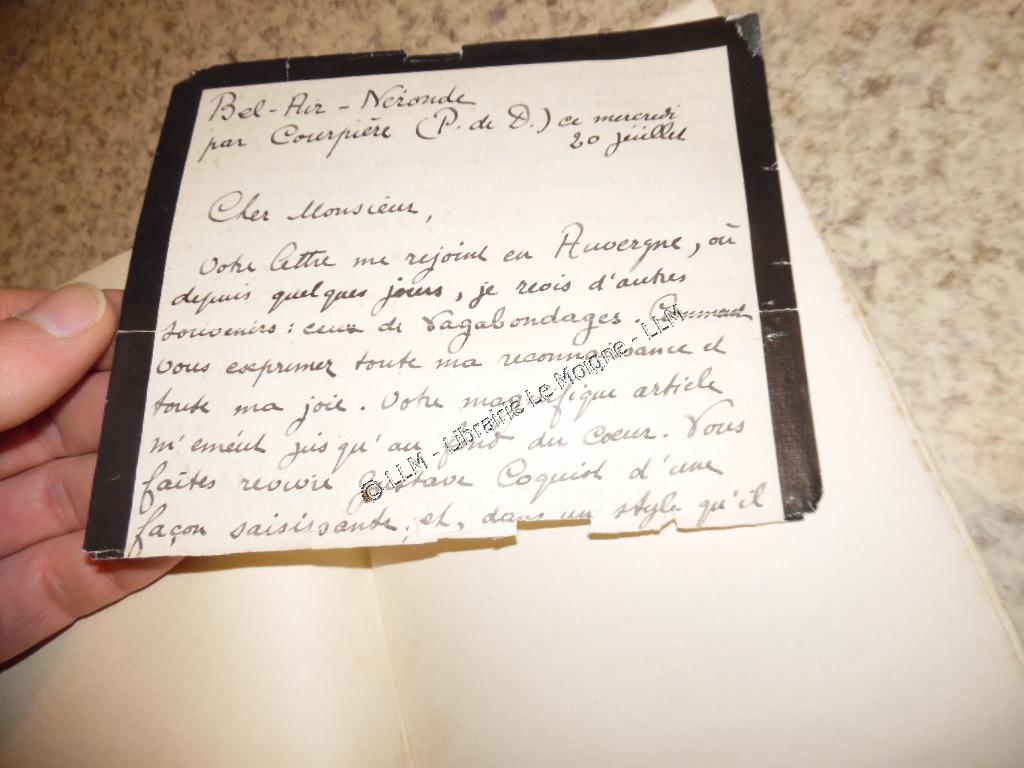 Bel-Air - Néronde
par Courpière (P. de D.) ce mercredi
20 juillet
Cher Monsieur,
Votre lettre me rejoint en Auvergne, où
depuis quelques jours, je revis d'autres
souvenirs : ceux de Vagabondages. Comment
vous exprimer toute ma reconnaissance et
toute ma joie. Votre magnifique article
m'émeut jusqu'au fond du coeur. Vous
faites revivre Gustave Coquiot d'une
façon saisissante, et, dans un style qu'il
© LLM - Librairie Le Moigne - LLM